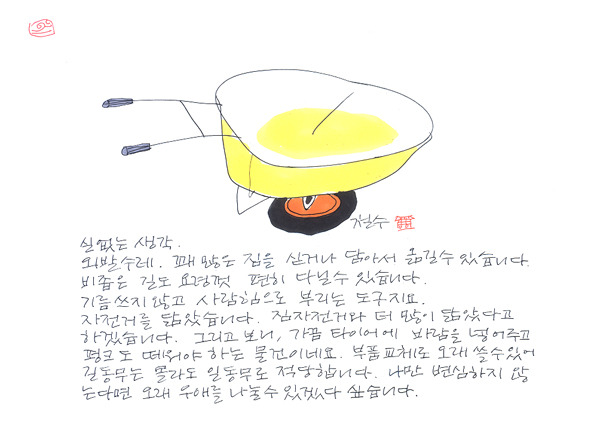 철수
실없는 생각.
외발수레. 꽤 많은 짐을 싣거나 담아서 옮길수 있습니다.
비좁은 길도 요령껏 편히 다닐수 있습니다.
기름쓰지 않고 사람힘으로 부리는 도구지요.
자전거를 닮았습니다. 짐자전거와 더 많이 닮았다고
하겠습니다. 그리고 보니, 가끔 타이어에 바람을 넣어주고
펑크도 떼워야 하는 물건이네요. 부품교체로 오래 쓸수있어
길동무는 몰라도 일동무로 적당합니다. 나만 변심하지 않
는다면 오래 우애를 나눌수 있겠다 싶습니다.